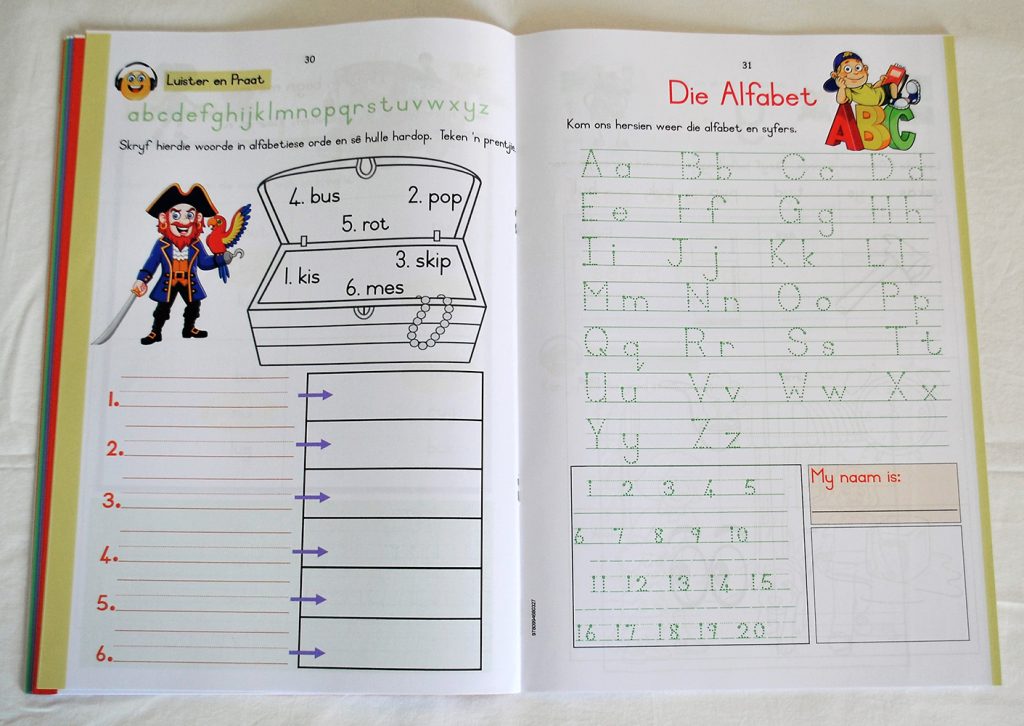 30
Luister en Praat
abcdefghijklmnopqrstuvwxyz
Skryf hierdie woorde in alfabetiese orde en sê hulle hardop. Teken 'n prentjie
4. bus 2. pop
5. rot
3. skip
1. kis
6. mes
1.
2.
3.
4.
5.
6.
31
Die Alfabet
ABC
Kom ons hersien weer die alfabet en syfers.
Aa Bb Cc Dd
Ee Ff Gg Hh
Ii Jj Kk Ll
Mm Nn Oo Pp
Qq Rr Ss Tt
Uu Vv Ww Xx
Yy Zz
1 2 3 4 5
6 7 8 9 10
11 12 13 14 15
16 17 18 19 20
My naam is: